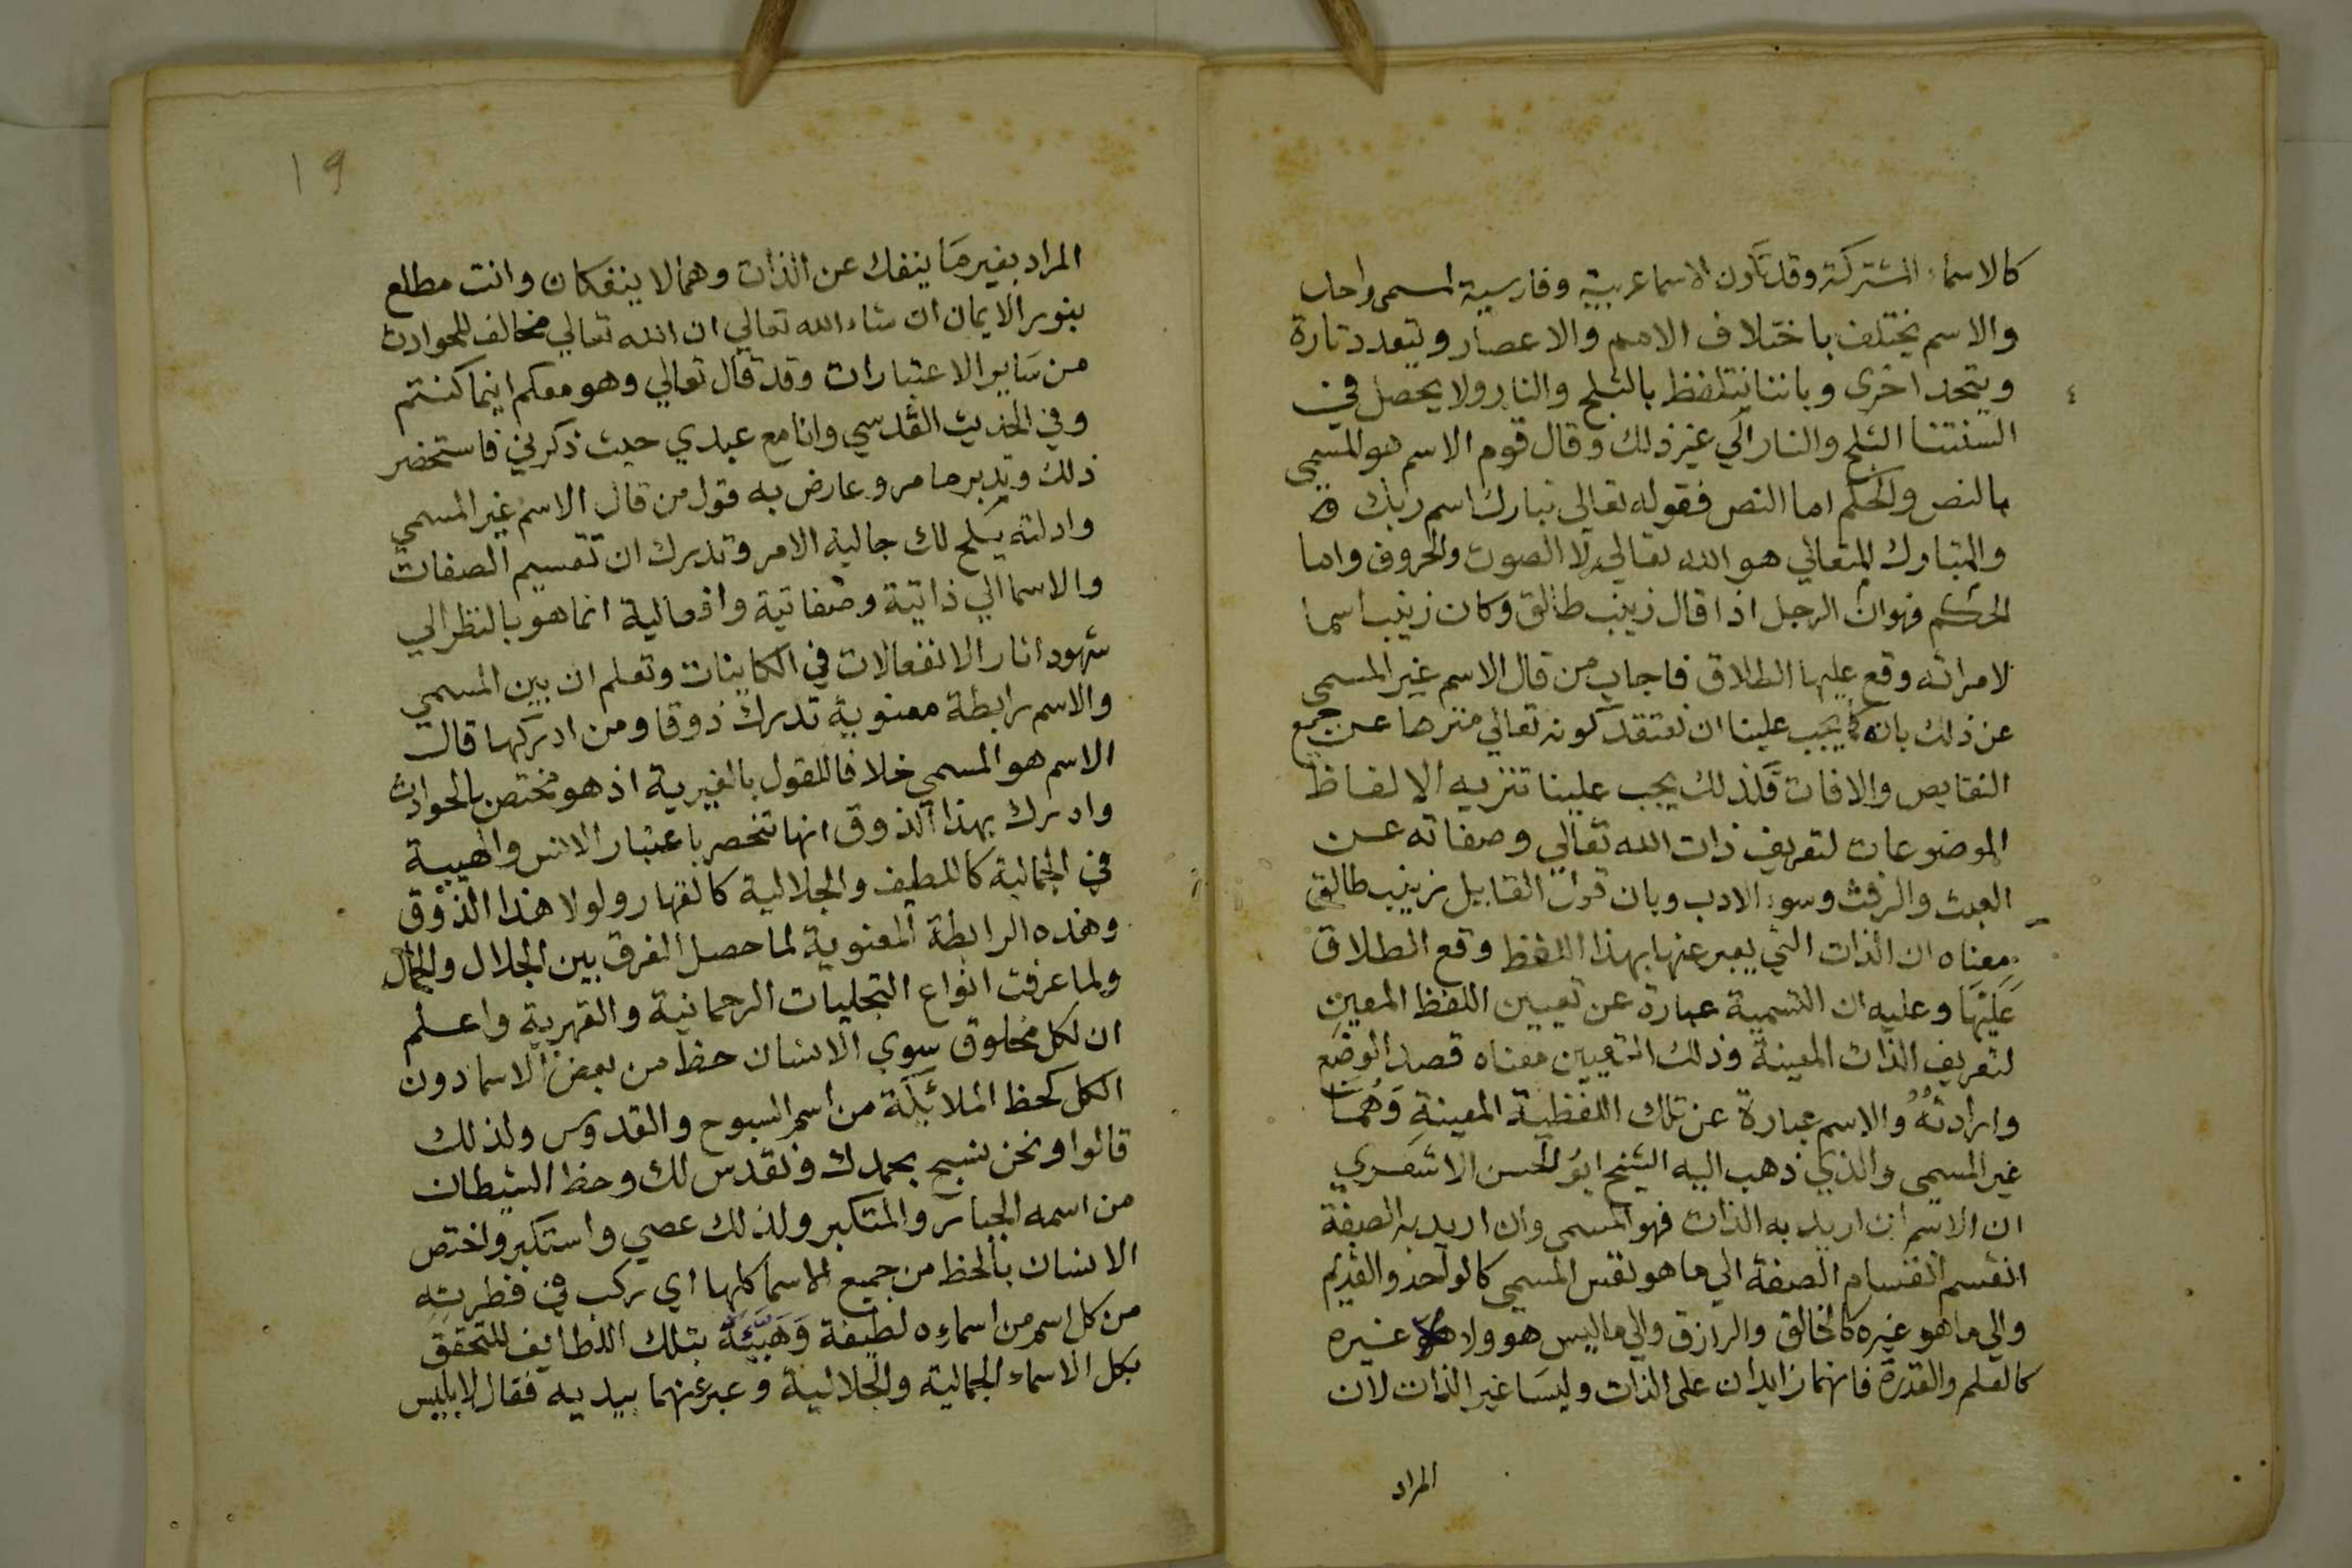 كالاسماء المشتركة وقد تكون الاسما عربية وفارسية لمسمى واحد
والاسم يختلف باختلاف الامم والاعصار ويتعدد تارة
ويتحد اخرى وباننا نتلفظ بالثلج والنار ولا يحصل في
السنتنا الثلج والنار الى غير ذلك وقال قوم الاسم هو المسمى
بالنص والحكم اما النص فقوله تعالى تبارك اسم ربك
والمتبارك المتعالي هو الله تعالى لا الصوت والحروف واما
الحكم فهو ان الرجل اذا قال زينب طالق وكان زينب اسما
لامراته وقع عليها الطلاق فاجاب من قال الاسم غير المسمى
عن ذلك بانه كما يجب علينا ان نعتقد كونه تعالي منزها عن جميع
النقايص والافات فكذلك يجب علينا تنزيه الالفاظ
الموضوعات لتعريف ذات الله تعالي وصفاته عن
العبث والرفث وسوء الادب وبان قول القايل زينب طالق
معناه ان الذات التي يعبر عنها بهذا اللفظ وقع الطلاق
عَلَيْهَا وعليه ان التسمية عبارة عن تعيين اللفظ المعين
لتعريف الذات المعينة وذلك التعيين معناه قصد الوضع
وارادته والاسم عبارة عن تلك اللفظية المعينة وَهُمَا
غير المسمى والذي ذهب اليه الشيخ ابو الحسن الاشعري
ان الاسم ان اريد به الذات فهو المسمى وان اريد به الصفة
انقسم انقسام الصفة الي ما هو نفس المسمى كالواحد والقديم
والي ما هو غيره كالخالق والرازق والي ما ليس هو ولا غيره
كالعلم والقدرة فانهما زايدان على الذات وليسا غير الذات لان
المراد
١٩
المراد بغير مَا ينفك عن الذات وهما لا ينفكان وانت مطلع
بنور الايمان ان شاء الله تعالي ان الله تعالي مخالف للحوادث
من سَاير الاعتبارات وقد قال تعالي وهو معكم اينما كنتم
وفي الحديث القدسي وانا مع عبدي حيث ذكرني فاستحضر
ذلك وتدبر ما مر وعارض به قول من قال الاسم غير المسمى
وادلته يلح لك جالية الامر وتدرك ان تقسيم الصفات
والاسما الي ذاتية وصفاتية وافعالية انما هو بالنظر الي
شهود اثار الانفعالات في الكاينات وتعلم ان بين المسمي
والاسم رابطة معنوية تدرك ذوقا ومن ادركها قال
الاسم هو المسمي خلافا للقول بالغيرية اذ هو مختص بالحوادث
وادرك بهذا الذوق انها تنحصر باعتبار الانس والهيبة
في الجمالية كاللطيف والجلالية كالقهار ولولا هذا الذوق
وهذه الرابطة المعنوية لما حصل الفرق بين الجلال والجمال
ولما عرفت انواع التجليات الرحمانية والقهرية واعلم
ان لكل مخلوق سوي الانسان حظا من بعض الاسما دون
الكل كحظ الملائكة من اسم السبوح والقدوس ولذلك
قالوا ونحن نسبح بحمدك ونقدس لك وحظ الشيطان
من اسمه الجبار والمتكبر ولذلك عصي واستكبر واختص
الانسان بالحظ من جميع الاسما كلها اي ركب في فطرته
من كل اسم من اسماءه لطيفة وَهَيَّئَهُ بتلك اللطايف للتحقق
بكل الاسماء الجمالية والجلالية وعبر عنهما بيديه فقال لابليس